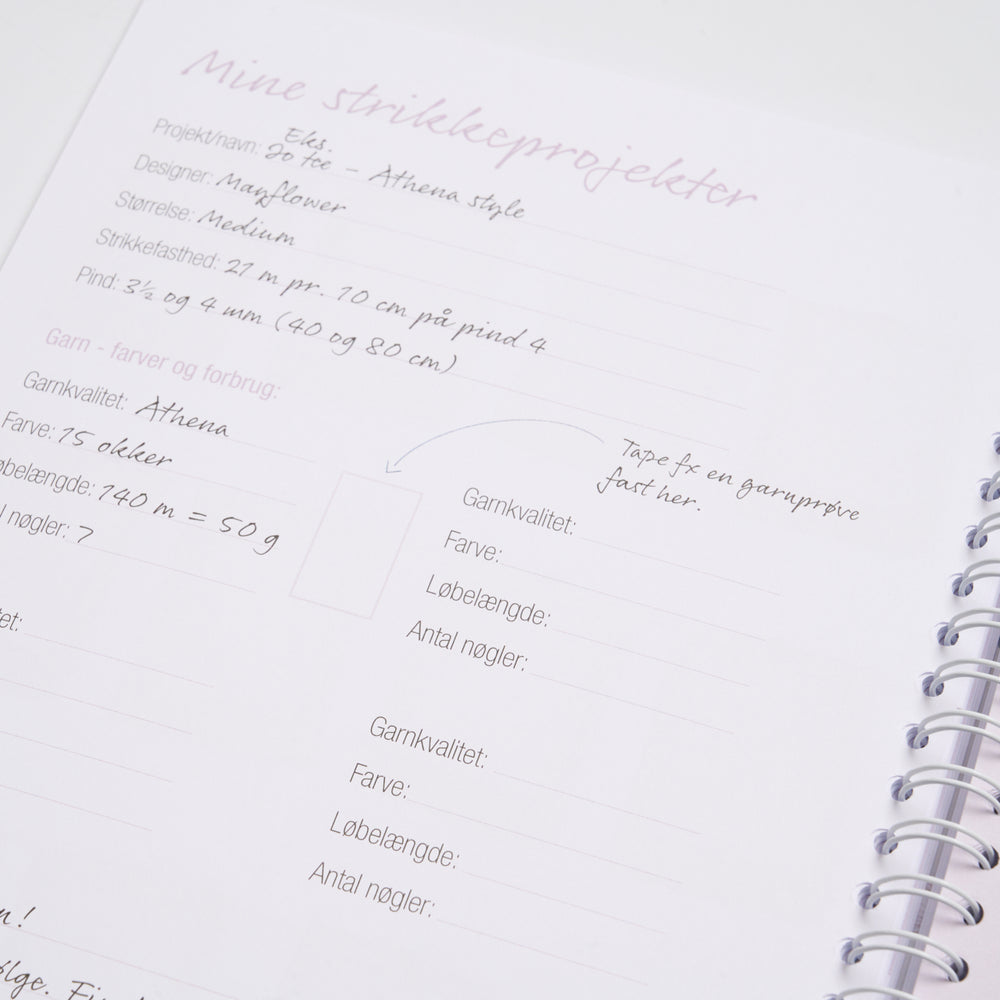 Mine strikkeprojekter
Eks.
Projekt/navn: Jo tee - Athena style
Designer: Mayflower
Størrelse: Medium
Strikkefasthed: 21 m pr. 10 cm på pind 4
Pind: 3½ og 4 mm (40 og 80 cm)
Garn - farver og forbrug:
Garnkvalitet: Athena
Farve: 15 okker
øbelængde: 140 m = 50 g
l nøgler: 7
Tape fx en garnprøve
fast her.
Garnkvalitet:
Farve:
Løbelængde:
Antal nøgler:
tet:
Garnkvalitet:
Farve:
Løbelængde:
Antal nøgler:
n!
ølge.